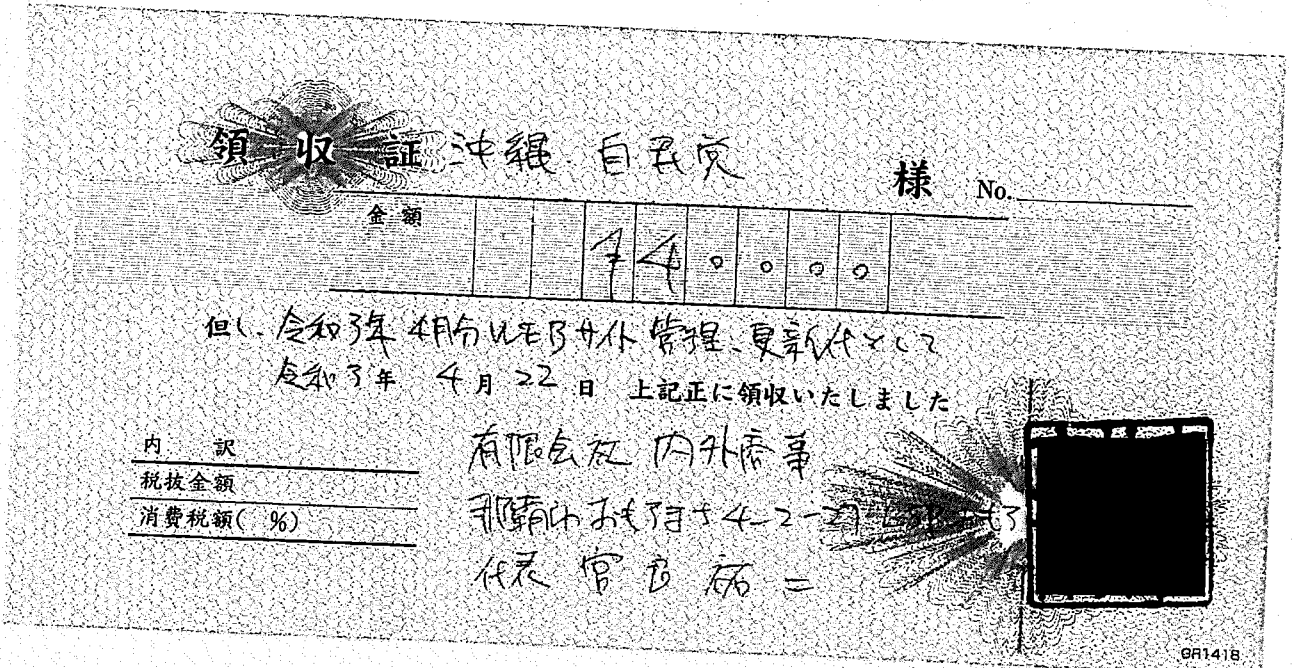 領収証 沖縄・自民党 様 No.
金額 ¥40000
但し、令和3年4月分WEBサイト管理、更新代として
令和3年 4月22日 上記正に領収いたしました
内訳
税抜金額
消費税額( %)
有限会社 内外商事
那覇市おもろまち4-2-27
代表 宮良 祐二
GR1418